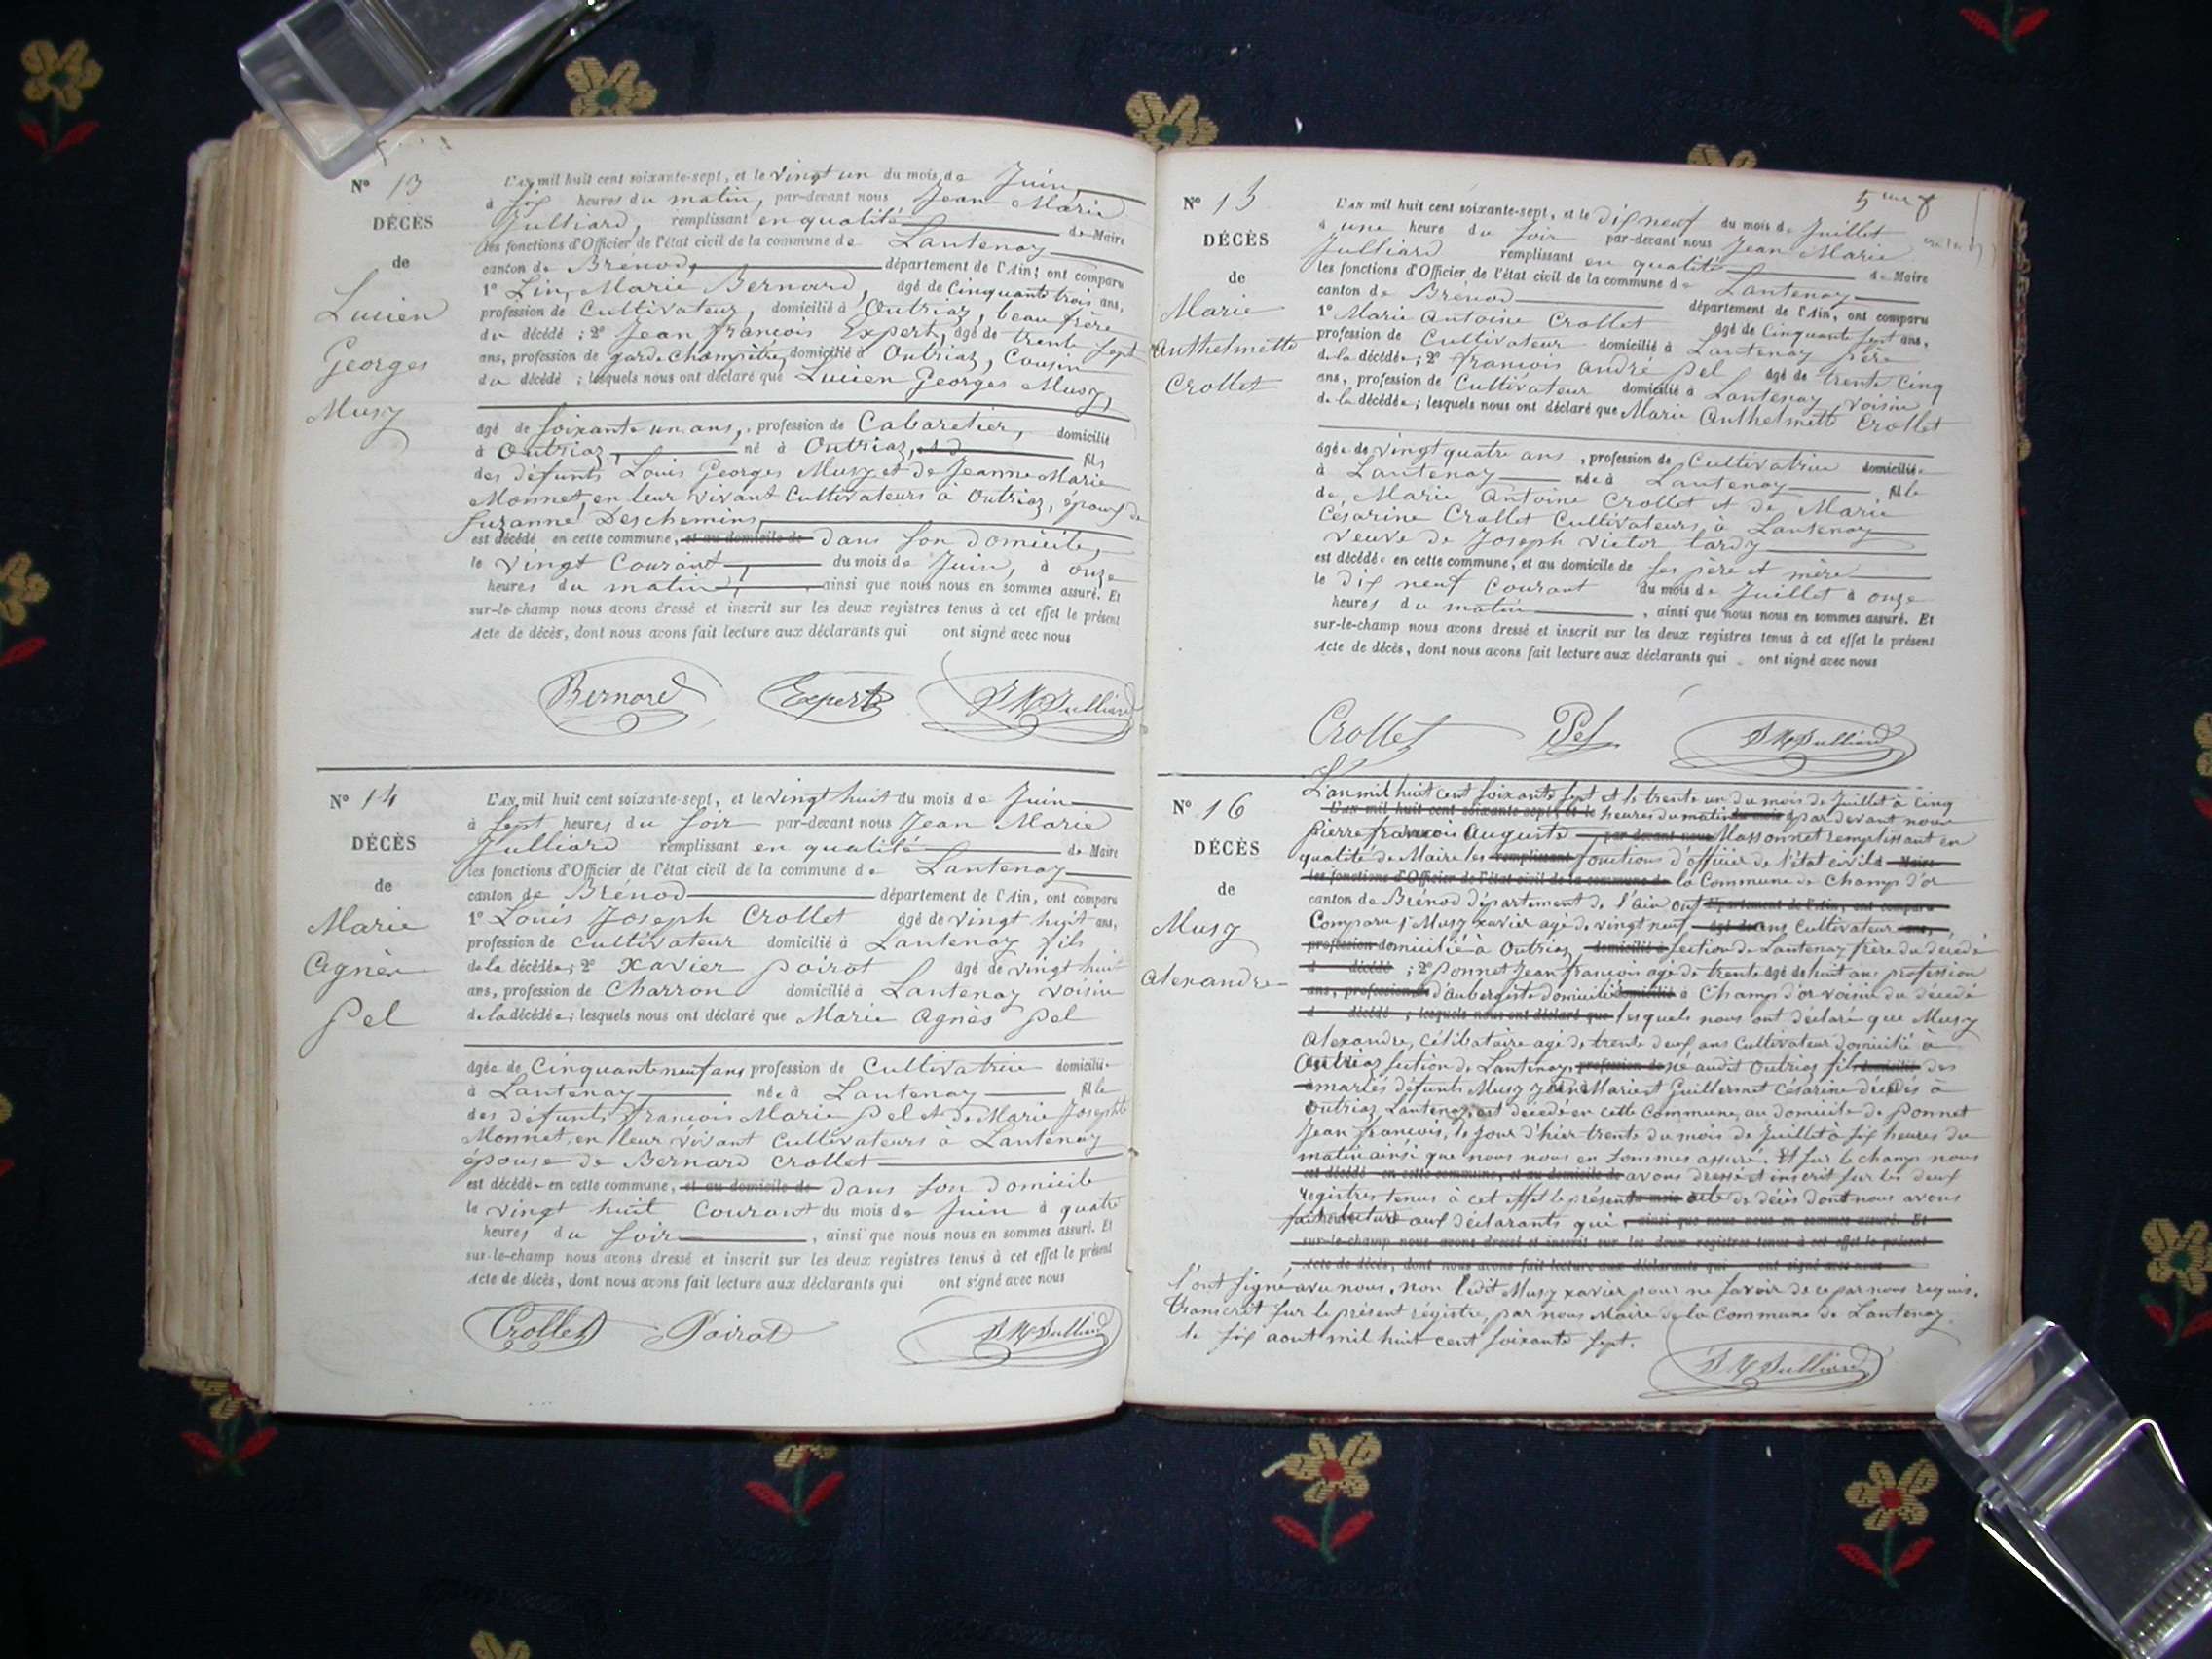 N° 13
DÉCÈS
de
Lucien
Georges
Musy
L'AN mil huit cent soixante-sept, et le vingt un du mois de Juin,
à six heures du matin, par-devant nous Jean Marie
Julliard, remplissant en qualité de Maire
les fonctions d'Officier de l'état civil de la commune de Lantenay
canton de Brénod, département de l'Ain; ont comparu
1° Lin, Marie Bernard, âgé de Cinquante trois ans,
profession de Cultivateur, domicilié à Outriaz, beau frère
du décédé; 2° Jean françois Expert, âgé de trente sept
ans, profession de garde Champêtre, domicilié à Outriaz, Cousin
du décédé; lesquels nous ont déclaré que Lucien Georges Musy,
âgé de soixante un ans, profession de Cabaretier, domicilié
à Outriaz, né à Outriaz, fils
des défunts Louis Georges Musy et de Jeanne Marie
Monnet, en leur vivant Cultivateurs à Outriaz, époux de
Suzanne Deschemins,
est décédé en cette commune, et au domicile de dans son domicile,
le vingt Courant, du mois de Juin, à onze
heures du matin, ainsi que nous nous en sommes assuré. Et
sur-le-champ nous avons dressé et inscrit sur les deux registres tenus à cet effet le présent
Acte de décès, dont nous avons fait lecture aux déclarants qui ont signé avec nous
Bernard Expert J M Julliard
N° 14
DÉCÈS
de
Marie
Agnès
Pel
L'AN mil huit cent soixante-sept, et le vingt huit du mois de Juin
à sept heures du soir par-devant nous Jean Marie
Julliard remplissant en qualité de Maire
les fonctions d'Officier de l'état civil de la commune de Lantenay
canton de Brénod département de l'Ain, ont comparu
1° Louis Joseph Crollet âgé de vingt huit ans,
profession de cultivateur domicilié à Lantenay fils
de la décédée; 2° Xavier Poirot âgé de vingt huit
ans, profession de Charron domicilié à Lantenay voisin
de la décédée; lesquels nous ont déclaré que Marie Agnès Pel
âgée de Cinquante neuf ans profession de Cultivatrice domiciliée
à Lantenay née à Lantenay fille
des défunts françois Marie Pel et de Marie Josephte
Monnet, en leur vivant Cultivateurs à Lantenay
épouse de Bernard Crollet
est décédée en cette commune, et au domicile de dans son domicile
le vingt huit Courant du mois de Juin à quatre
heures du soir, ainsi que nous nous en sommes assuré. Et
sur-le-champ nous avons dressé et inscrit sur les deux registres tenus à cet effet le présent
Acte de décès, dont nous avons fait lecture aux déclarants qui ont signé avec nous
Crollet Poirot J M Julliard
5
N° 15
DÉCÈS
de
Marie
Anthelmette
Crollet
L'AN mil huit cent soixante-sept, et le dix neuf du mois de Juillet
à une heure du soir par-devant nous Jean Marie
Julliard remplissant en qualité de Maire
les fonctions d'Officier de l'état civil de la commune de Lantenay
canton de Brénod département de l'Ain, ont comparu
1° Marie Antoine Crollet âgé de Cinquante sept ans,
profession de Cultivateur domicilié à Lantenay père
de la décédée; 2° françois André Pel âgé de trente Cinq
ans, profession de Cultivateur domicilié à Lantenay voisin
de la décédée; lesquels nous ont déclaré que Marie Anthelmette Crollet
âgée de vingt quatre ans, profession de Cultivatrice domiciliée
à Lantenay née à Lantenay fille
de Marie Antoine Crollet et de Marie
Césarine Crollet Cultivateurs, à Lantenay
veuve de Joseph Victor tardy
est décédée en cette commune, et au domicile de ses père et mère
le dix neuf courant du mois de Juillet à onze
heures du matin, ainsi que nous nous en sommes assuré. Et
sur-le-champ nous avons dressé et inscrit sur les deux registres tenus à cet effet le présent
Acte de décès, dont nous avons fait lecture aux déclarants qui ont signé avec nous
Crollet Pel J M Julliard
N° 16
DÉCÈS
de
Musy
Alexandre
L'an mil huit cent soixante sept et le trente un du mois de Juillet à cinq
L'AN mil huit cent soixante-sept, et le heures du matin par devant nous
Pierre françois Auguste par-devant nous Massonnet remplissant en
qualité de Maire les remplissant fonctions d'officier de l'état civil de Maire
les fonctions d'Officier de l'état civil de la commune de la Commune de Champ d'or
canton de Brénod département de l'Ain ont département de l'Ain, ont comparu
Comparu 1° Musy xavier agé de vingt neuf âgé de ans Cultivateur ans,
profession domicilié à Outriaz, domicilié à section de Lantenay frère du décédé
d décédé; 2° Ponnet Jean françois agé de trente âgé de huit ans profession
ans, profession de d'aubergiste domicilié domicilié à Champ d'or voisin du décédé
d décédé; lesquels nous ont déclaré que lesquels nous ont déclaré que Musy
Alexandre, Célibataire agé de trente deux ans Cultivateur domicilié à
Outriaz section de Lantenay, profession de né audit Outriaz fils domicilié des
à mariés défunts Musy Marie et Guillermet Césarine décédés à
Outriaz Lantenay, est décédé en cette Commune, au domicile de Ponnet
Jean françois, le jour d'hier trente du mois de Juillet à six heures du
matin ainsi que nous nous en sommes assuré. Et sur le champ nous
est décédé en cette commune, et au domicile de avons dressé et inscrit sur les deux
registres tenus à cet effet le présent du mois acte de décès dont nous avons
fait lecture aux déclarants qui, ainsi que nous nous en sommes assuré. Et
sur-le-champ nous avons dressé et inscrit sur les deux registres tenus à cet effet le présent
Acte de décès, dont nous avons fait lecture aux déclarants qui ont signé avec nous
l'ont signé avec nous, non ledit Musy xavier pour ne savoir de ce par nous requis.
Transcrit sur le présent régistre, par nous Maire de la Commune de Lantenay.
le six aout mil huit cent soixante sept.
J M Julliard